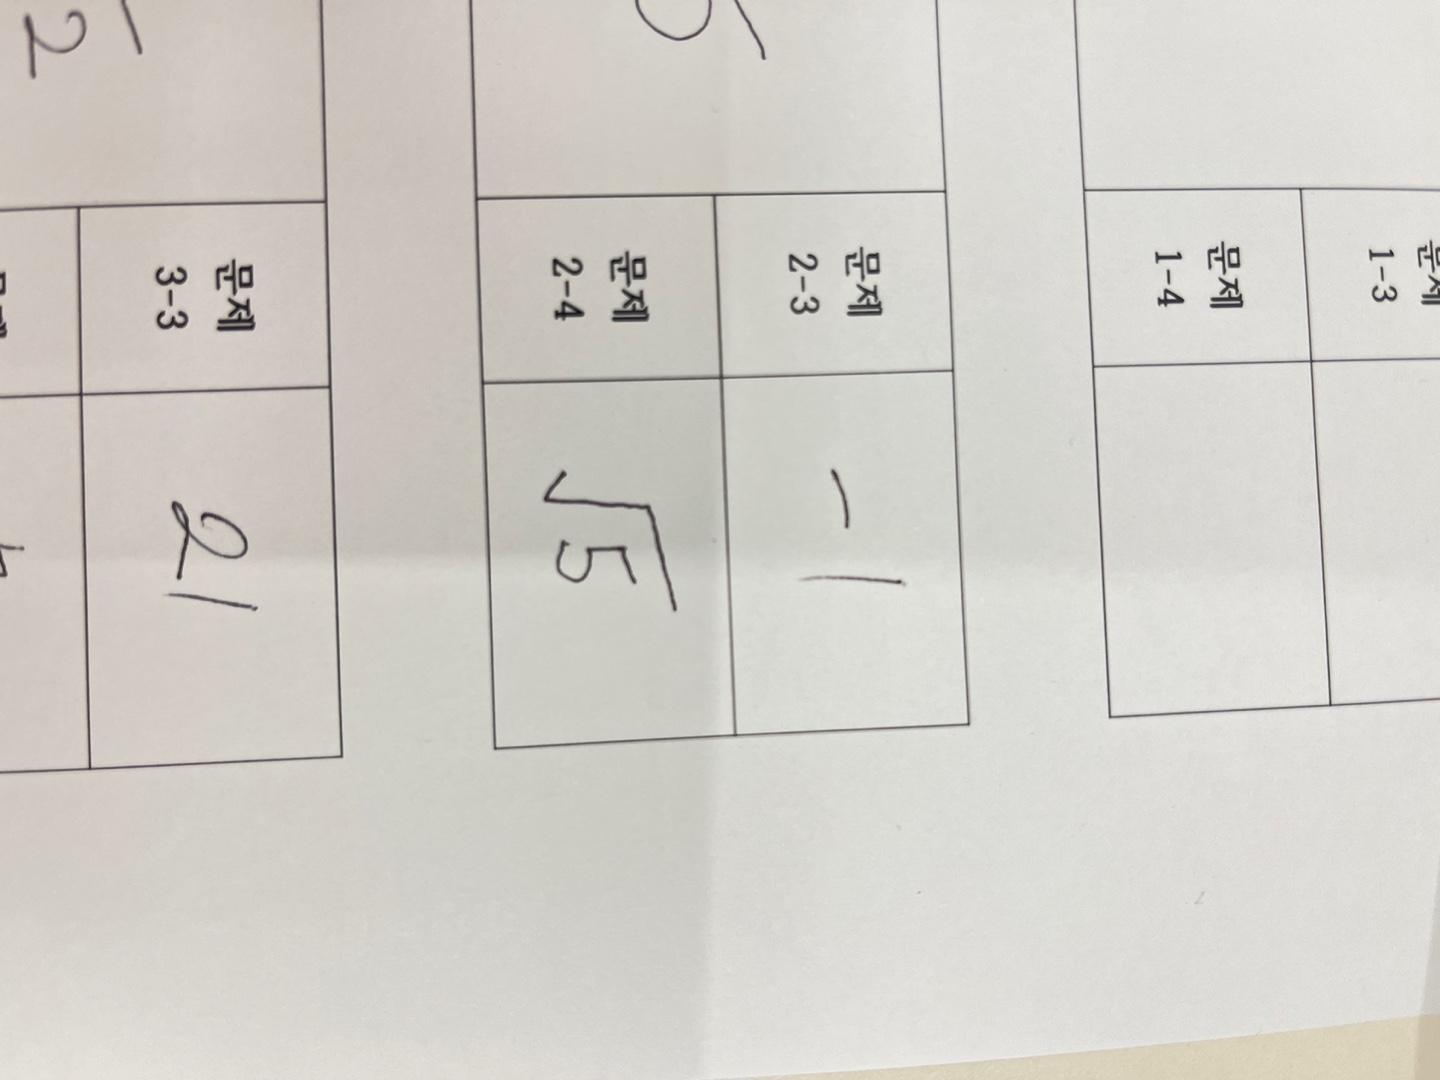 문제
1-3
문제
1-4
문제
2-3
-1
문제
2-4
√5
문제
3-3
21